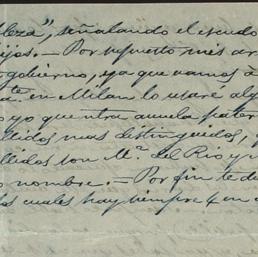 bleza", señalando el escudo
ijos. — Por supuesto mis ar
gobierno, ya que vamos á
te en Milan lo usaré alg
yo que ntra abuela pater
llidos mas distinguidos,
llidos son Mª. del Rio y
nombre. — Por fin te d
los cuales hay siempre 4 en